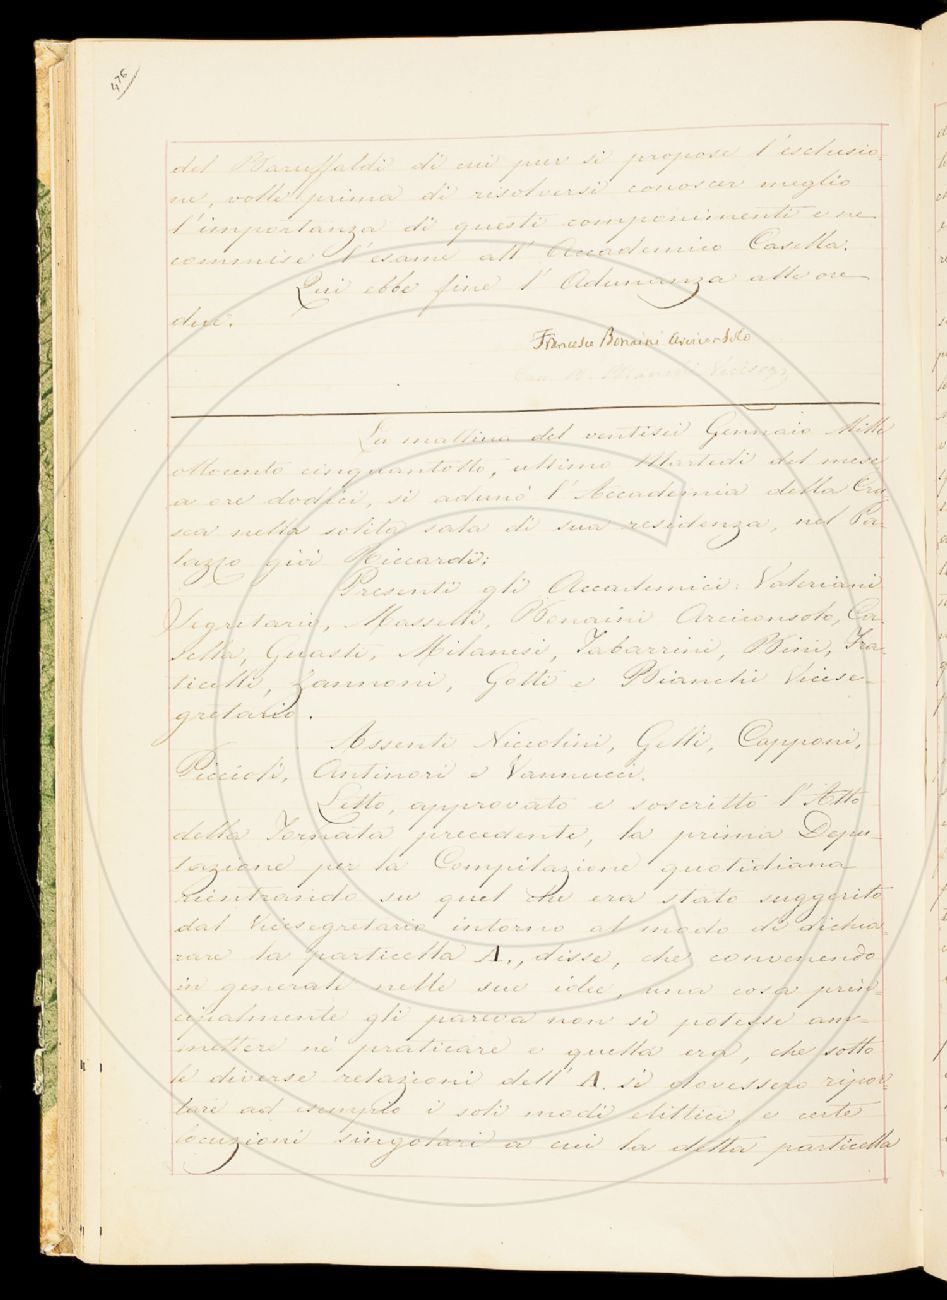 476
del Baruffaldi di cui pur si propose l'esclusio-
ne, volli prima di risolversi conoscer meglio
l'importanza di questi componimenti e ne
commise l'esame all'Accademico Casella.
Qui ebbe fine l'Adunanza alle ore
due.
Francesco Bonaini Arciconsolo
B. Bianchi Viceseg.
La mattina del ventisei Gennaio Mille
ottocento cinquantotto, ultimo Martedì del mese
a ore dodici, si adunò l'Accademia della Cru-
sca nella solita sala di sua residenza, nel Pa-
lazzo già Riccardi:
Presenti gli Accademici: Valeriani
Segretario, Masselli, Bonaini Arciconsolo, Ca-
sella, Guasti, Milanesi, Tabarrini, Bini, Fra-
ticelli, Zannoni, Gotti e Bianchi Vicese-
gretario.
Assenti Niccolini, Gelli, Capponi,
Piccioli, Antinori e Vannucci.
Letto, approvato e soscritto l'Atto
della Tornata precedente, la prima Depu-
tazione per la Compilazione quotidiana
rientrando su quel che era stato suggerito
dal Vicesegretario intorno al modo di dichia-
rare la particella A., disse, che convenendo
in generale nelle sue idee, una cosa prin-
cipalmente gli pareva non si potesse am-
mettere nè praticare e quella era, che sotto
le diverse relazioni dell'A. si dovessero ripor-
tare ad esempio i soli modi elittici, e certe
locuzioni singolari a cui la detta particella